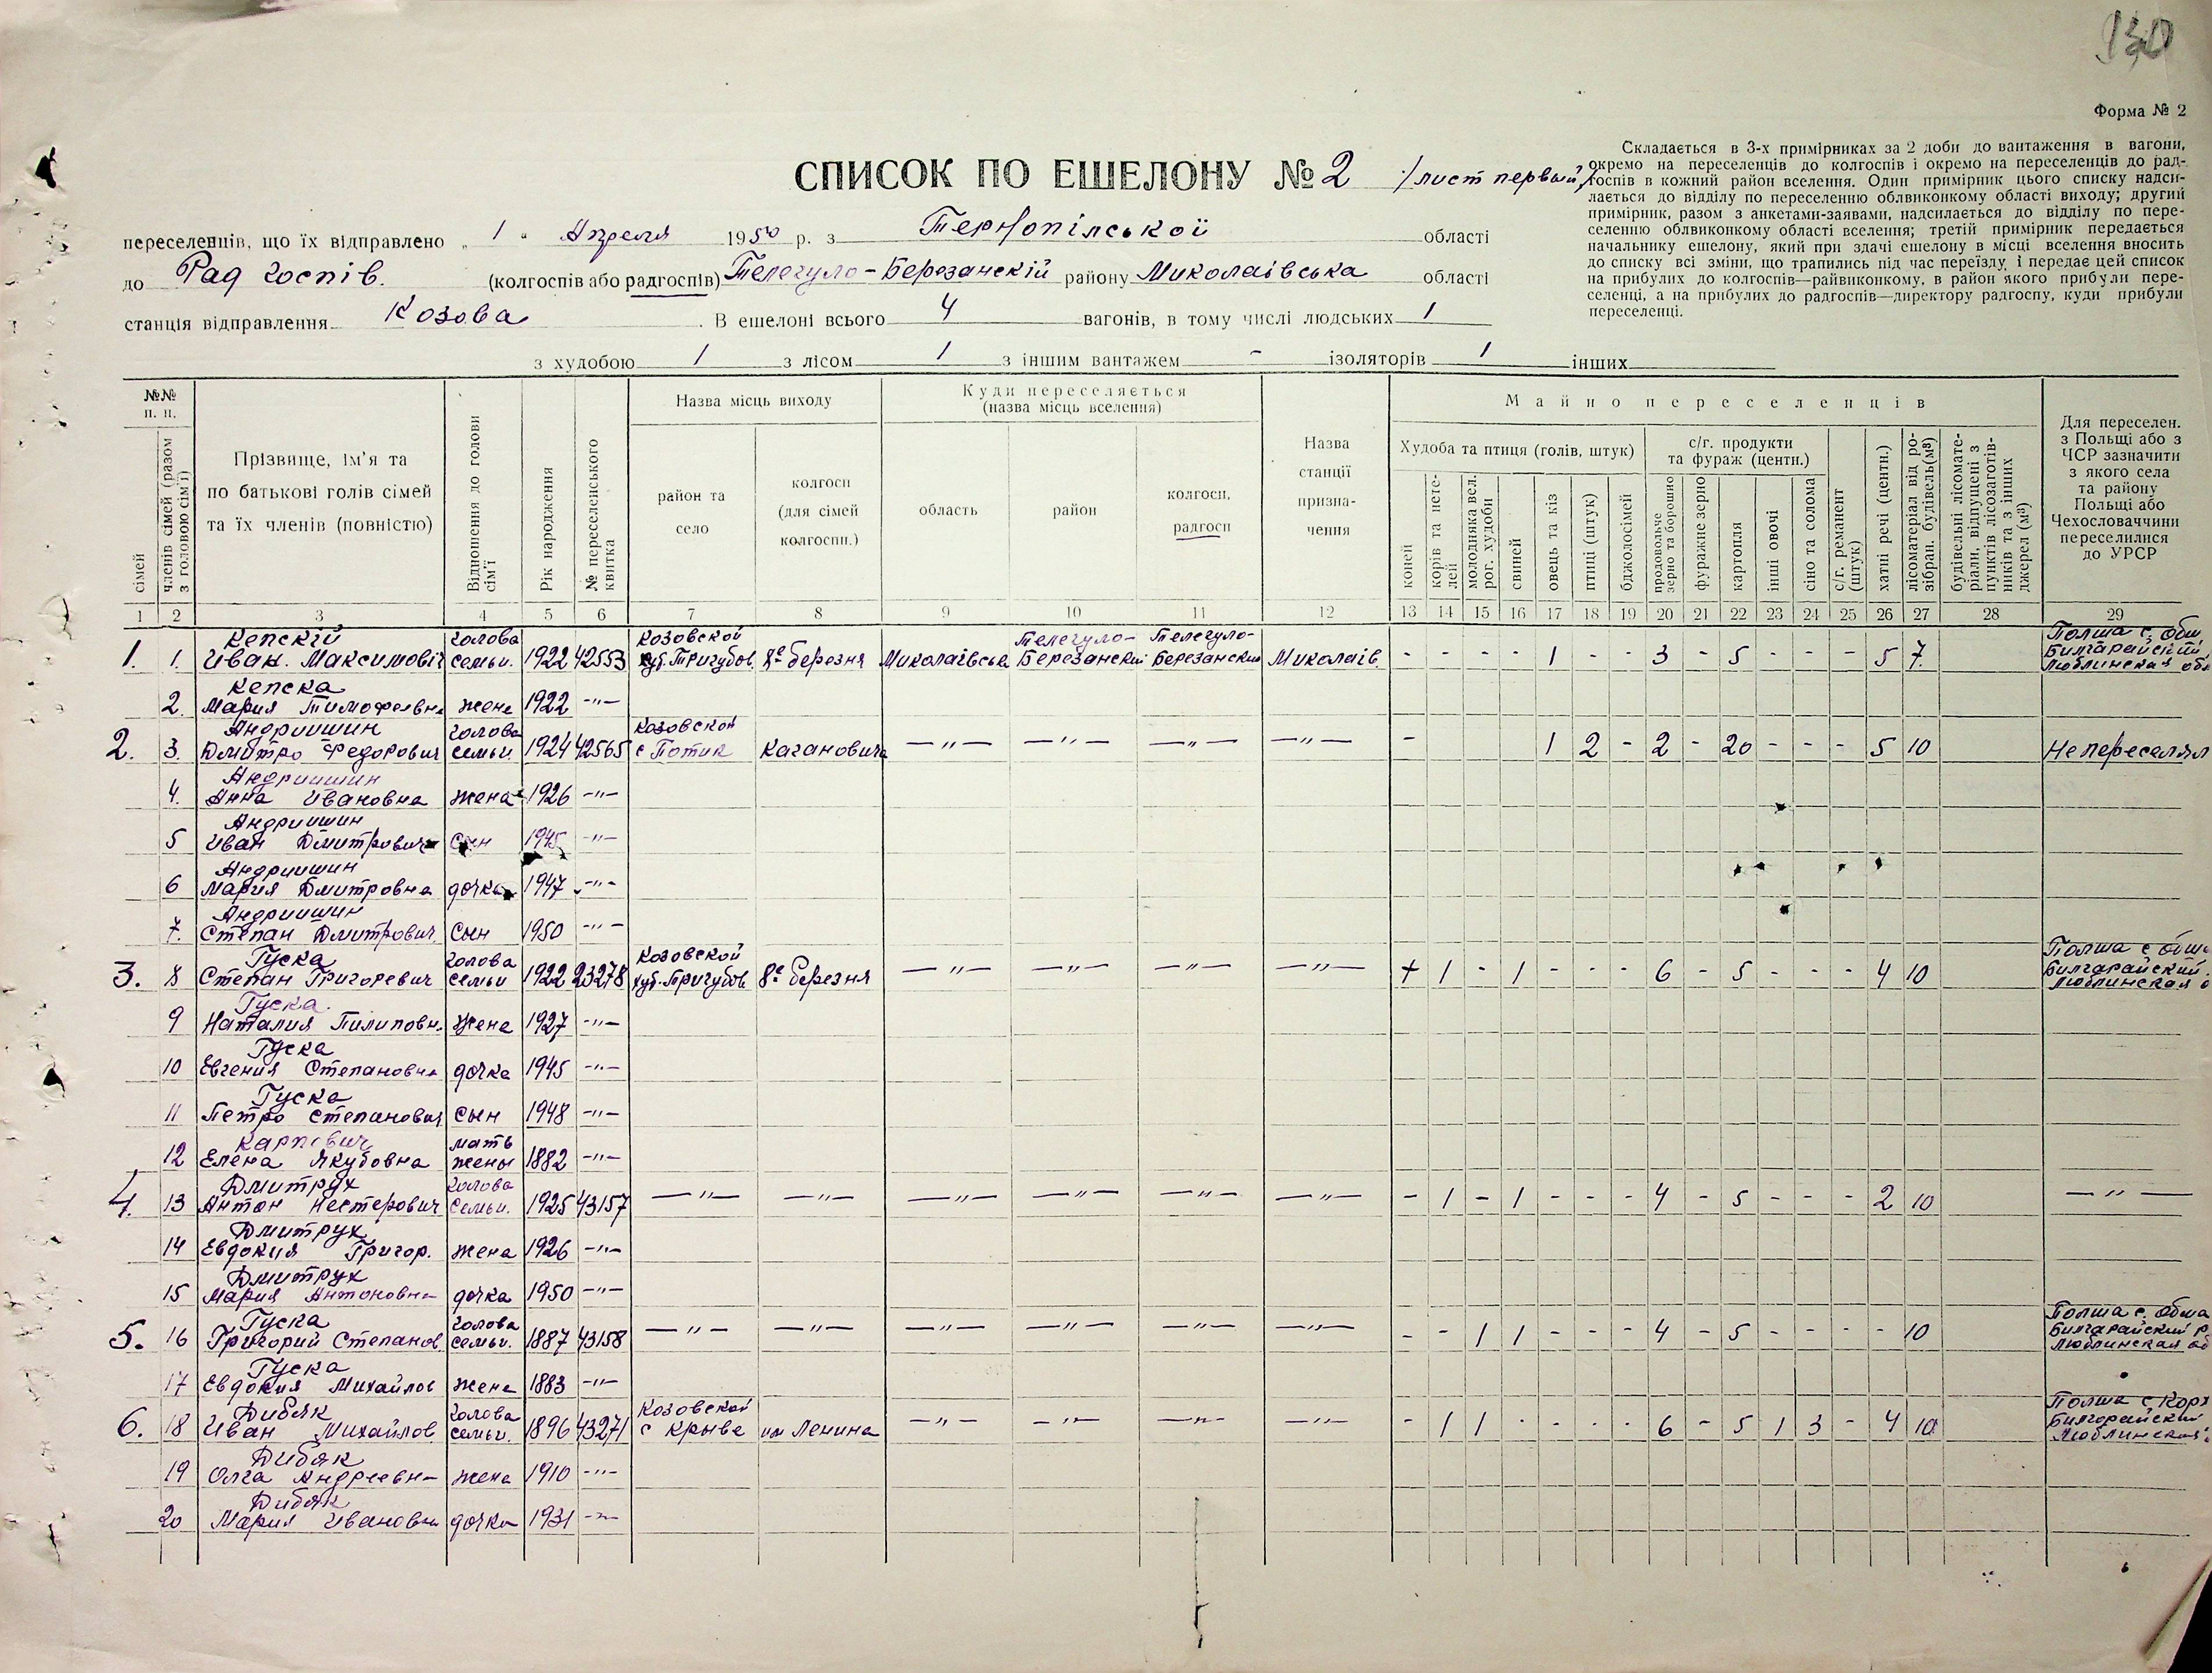 130
Форма № 2
СПИСОК ПО ЕШЕЛОНУ № 2 /лист первый/
Складається в 3-х примірниках за 2 доби до вантаження в вагони,
окремо на переселенців до колгоспів і окремо на переселенців до рад-
госпів в кожний район вселення. Один примірник цього списку надси-
лається до відділу по переселенню облвиконкому області виходу; другий
примірник, разом з анкетами-заявами, надсилається до відділу по пере-
селенню облвиконкому області вселення; третій примірник передається
начальнику ешелону, який при здачі ешелону в місці вселення вносить
до списку всі зміни, що трапились під час переїзду і передає цей список
на прибулих до колгоспів—райвиконкому, в район якого прибули пере-
селенці, а на прибулих до радгоспів—директору радгоспу, куди прибули
переселенці.
переселенців, що їх відправлено „ 1 " Апреля 1950 р. з Тернопілської області
до Рад госпів. (колгоспів або радгоспів) Телегуло-Березанскій району Миколаівська області
станція відправлення Козова . В ешелоні всього 4 вагонів, в тому числі людських 1
з худобою 1 з лісом 1 з іншим вантажем - ізоляторів 1 інших
№№ п. п.
сімей
членів сімей (разом з головою сім'ї)
Прізвище, ім'я та
по батькові голів сімей
та їх членів (повністю)
Відношення до голови сім'ї
Рік народження
№ переселенського квитка
Назва місць виходу
район та
село
колгосп
(для сімей
колгоспн.)
Куди переселяється
(назва місць вселення)
область
район
колгосп,
радгосп
Назва
станції
призна-
чення
Майно переселенців
Худоба та птиця (голів, штук)
коней
корів та нете-
лей
молодняка вел.
рог. худоби
свиней
овець та кіз
птиці (штук)
бджолосімей
с/г. продукти
та фураж (центн.)
продовольче
зерно та борошно
фуражне зерно
картопля
інші овочі
сіно та солома
с/г. реманент
(штук)
хатні речі (центн.)
лісоматеріал від ро-
зібран. будівель(м³)
будівельні лісомате-
ріали, відпущені з
пунктів лісозаготів-
ників та з інших
джерел (м³)
Для переселен.
з Польщі або з
ЧСР зазначити
з якого села
та району
Польщі або
Чехословаччини
переселилися
до УРСР
1 2 3 4 5 6 7 8 9 10 11 12 13 14 15 16 17 18 19 20 21 22 23 24 25 26 27 28 29
Кепскій голова Козовской Телегуло- Телегуло- Полша с. обш
1. 1. Иван. Максимовіч семьи. 1922 42553 хут. Тригубов. 8е березня Миколаівськ Березански Березански Миколаів. - - - - 1 - - 3 - 5 - - - 5 7. Билгарайский
Люблинская об
Кепска
2. Мария Тимофеевна жена 1922 -"-
Андриишин голова Козовской
2. 3. Дмитро Федорович семьи. 1924 42565 с Потик Кагановича -"- -"- -"- -"- - 1 2 - 2 - 20 - - - 5 10 Непереселял
Андриишин
4. Анна Ивановна жена 1926 -"-
Андриишин
5 Иван Дмитрович Сын 1945 -"-
Андриишин
6 Мария Дмитровна дочка 1947 -"-
Андриишин
7. Степан Дмитрович. Сын 1950 -"-
Гуска голова Козовской Полша с обш
3. 8 Степан Григоревич семьи 1922 23278 хут. Тригубов 8е березня -"- -"- -"- -"- + 1 - 1 - - - 6 - 5 - - - 4 10 Билгарайский
Люблинская о
Гуска.
9 Наталия Пилиповн. Жена 1927 -"-
Гуска
10 Евгения Степановна дочка 1945 -"-
Гуска
11 Петро Степанович Сын 1948 -"-
Карпович мать
12 Елена Якубовна жены 1882 -"-
Дмитрук голова
4. 13 Антон Нестерович семьи. 1925 43157 -"- -"- -"- -"- -"- -"- - 1 - 1 - - - 4 - 5 - - - 2 10 -"-
Дмитрук
14 Евдокия Григор. жена 1926 -"-
Дмитрук
15 Мария Антоновна дочка 1950 -"-
Гуска голова Полша с. обша
5. 16 Григорий Степанов. семьи. 1887 43158 -"- -"- -"- -"- -"- -"- - - 1 1 - - - 4 - 5 - - - - 10 Билгарайский р
Люблинская об
Гуска
17 Евдокия Михайлов жена 1883 -"-
Дибяк голова Козовской Полша с Корх
6. 18 Иван Михайлов. семьи. 1896 43271 с Крыве им Ленина -"- -"- -"- -"- - 1 1 - - - - 6 - 5 1 3 - 4 10 Билгорайский
Люблинская
Дибяк
19 Олга Андреевна жена 1910 -"-
Дибяк
20 Мария Ивановна дочка 1931 -"-